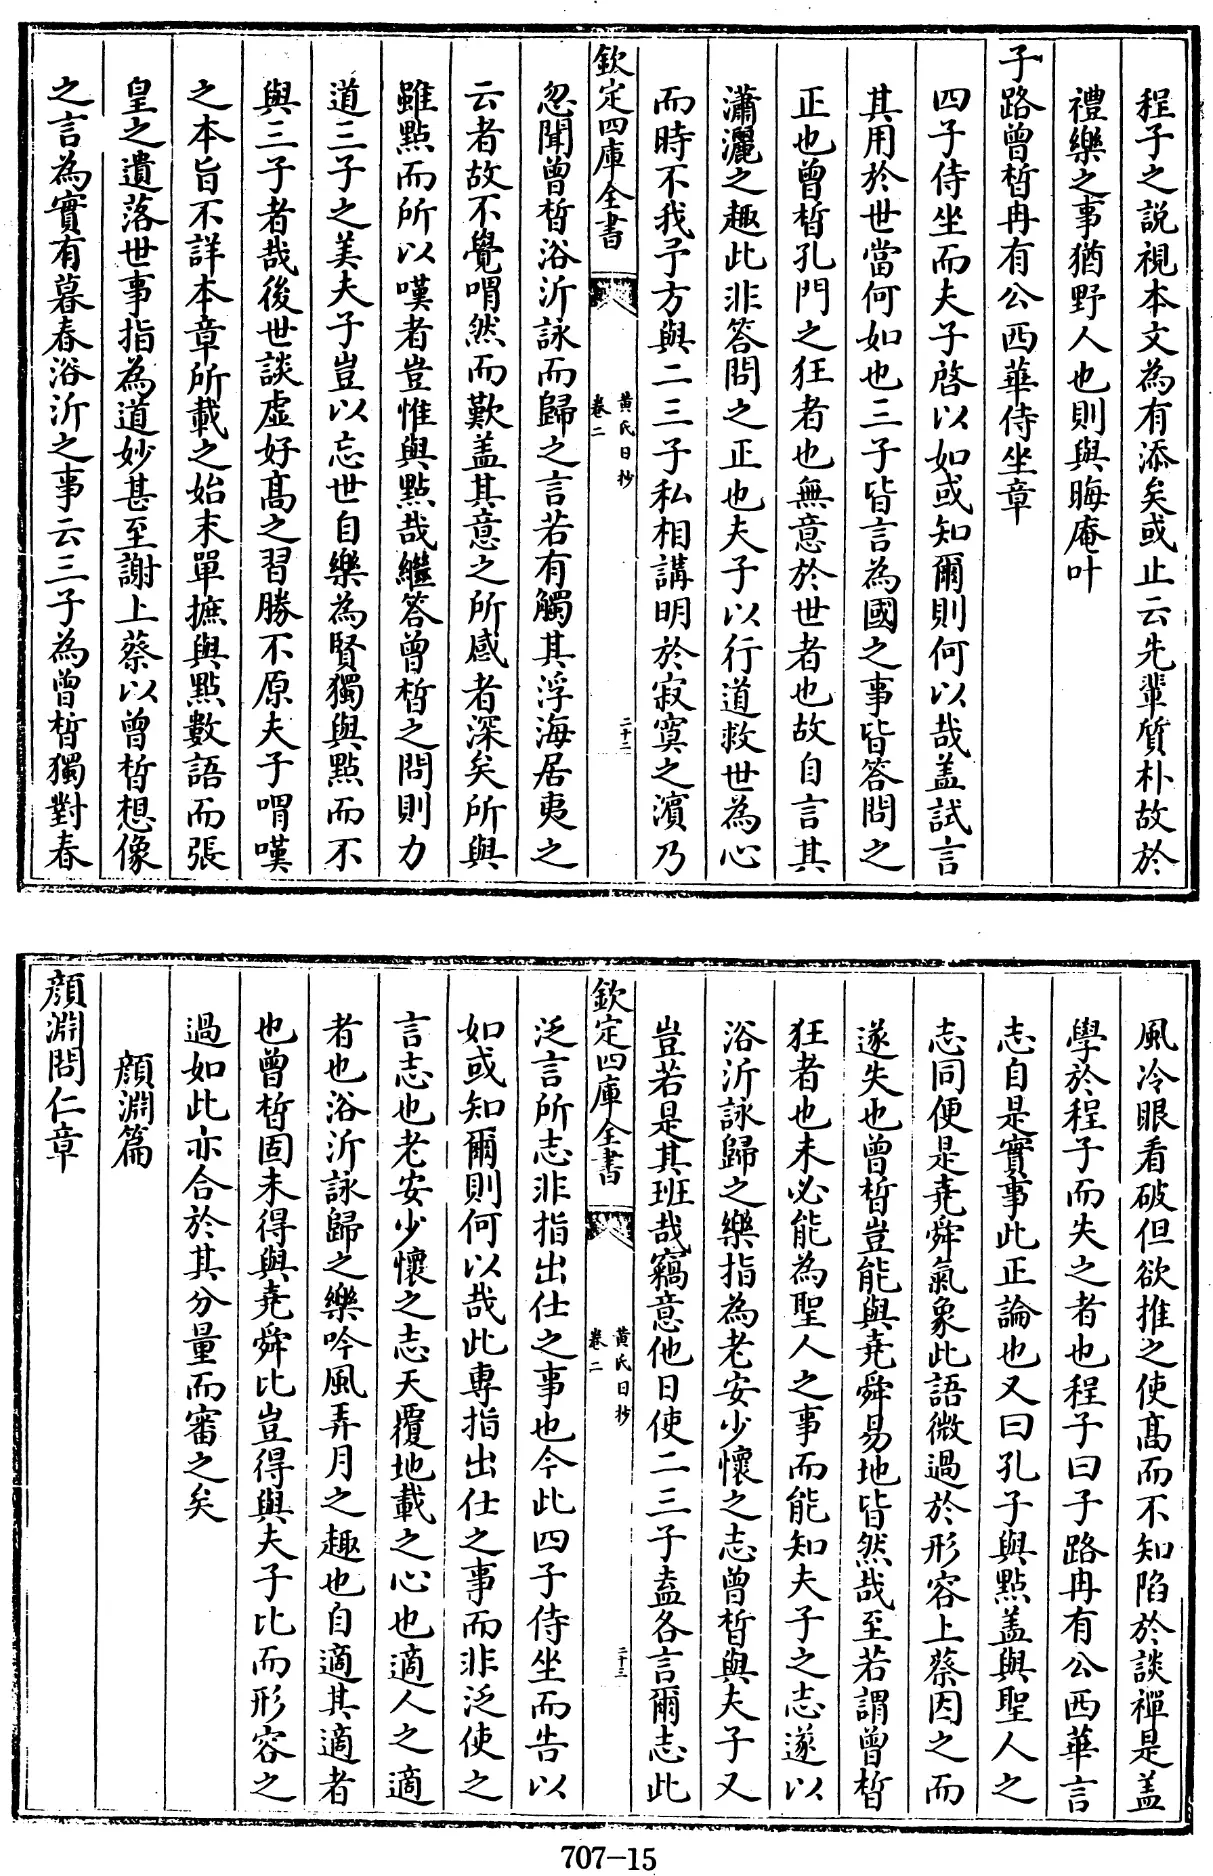 程子之説視本文為有添矣或止云先輩質朴故於
禮樂之事猶野人也則與晦庵叶
子路曾晳冉有公西華侍坐章
四子侍坐而夫子啓以如或知爾則何以哉盖試言
其用於世當何如也三子皆言為國之事皆答問之
正也曾晳孔門之狂者也無意於世者也故自言其
瀟灑之趣此非答問之正也夫子以行道救世為心
而時不我予方與二三子私相講明於寂寞之濱乃
欽定四庫全書
黄氏日抄
卷二
二十二
忽聞曾晳浴沂詠而歸之言若有觸其浮海居夷之
云者故不覺喟然而歎盖其意之所感者深矣所與
雖點而所以嘆者豈惟與點哉繼答曾晳之問則力
道三子之美夫子豈以忘世自樂為賢獨與點而不
與三子者哉後世談虛好髙之習勝不原夫子喟嘆
之本旨不詳本章所載之始末單摭與點數語而張
皇之遺落世事指為道妙甚至謝上蔡以曾晳想像
之言為實有暮春浴沂之事云三子為曾晳獨對春
風冷眼看破但欲推之使髙而不知陷於談禪是盖
學於程子而失之者也程子曰子路冉有公西華言
志自是實事此正論也又曰孔子與點盖與聖人之
志同便是堯舜氣象此語微過於形容上蔡因之而
遂失也曾晳豈能與堯舜易地皆然哉至若謂曾晳
狂者也未必能為聖人之事而能知夫子之志遂以
浴沂詠歸之樂指為老安少懷之志曾晳與夫子又
豈若是其班哉竊意他日使二三子盍各言爾志此
欽定四庫全書
黄氏日抄
卷二
二十三
泛言所志非指出仕之事也今此四子侍坐而告以
如或知爾則何以哉此專指出仕之事而非泛使之
言志也老安少懷之志天覆地載之心也適人之適
者也浴沂詠歸之樂吟風弄月之趣也自適其適者
也曾晳固未得與堯舜比豈得與夫子比而形容之
過如此亦合於其分量而審之矣
顔淵篇
顔淵問仁章
707-15